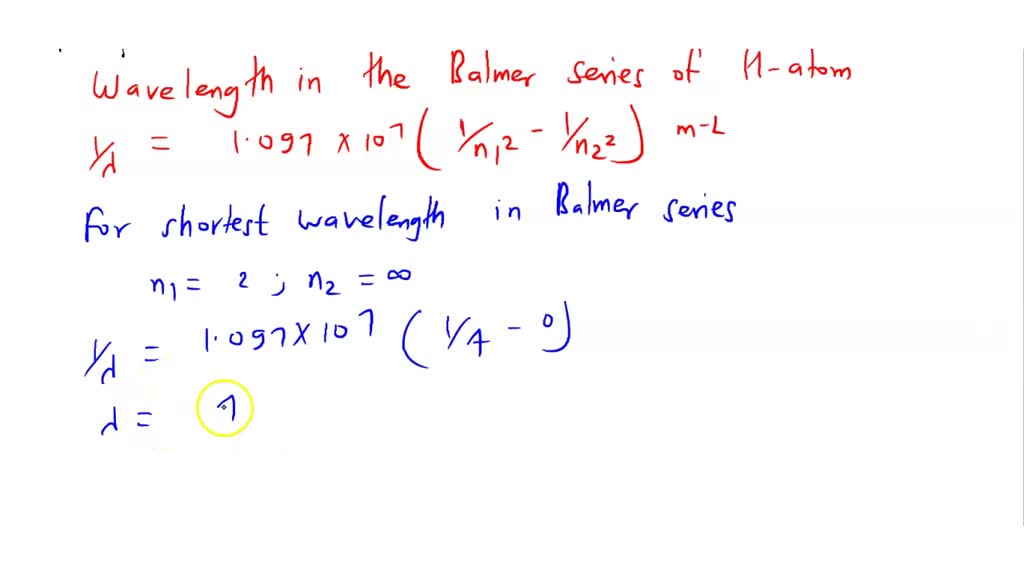 Wavelength in the Balmer series of H-atom
1/λ = 1.097 × 10^7 ( 1/n₁² - 1/n₂² ) m-1
For shortest wavelength in Balmer series
n₁ = 2 ; n₂ = ∞
1/λ = 1.097 × 10^7 ( 1/4 - 0 )
λ =